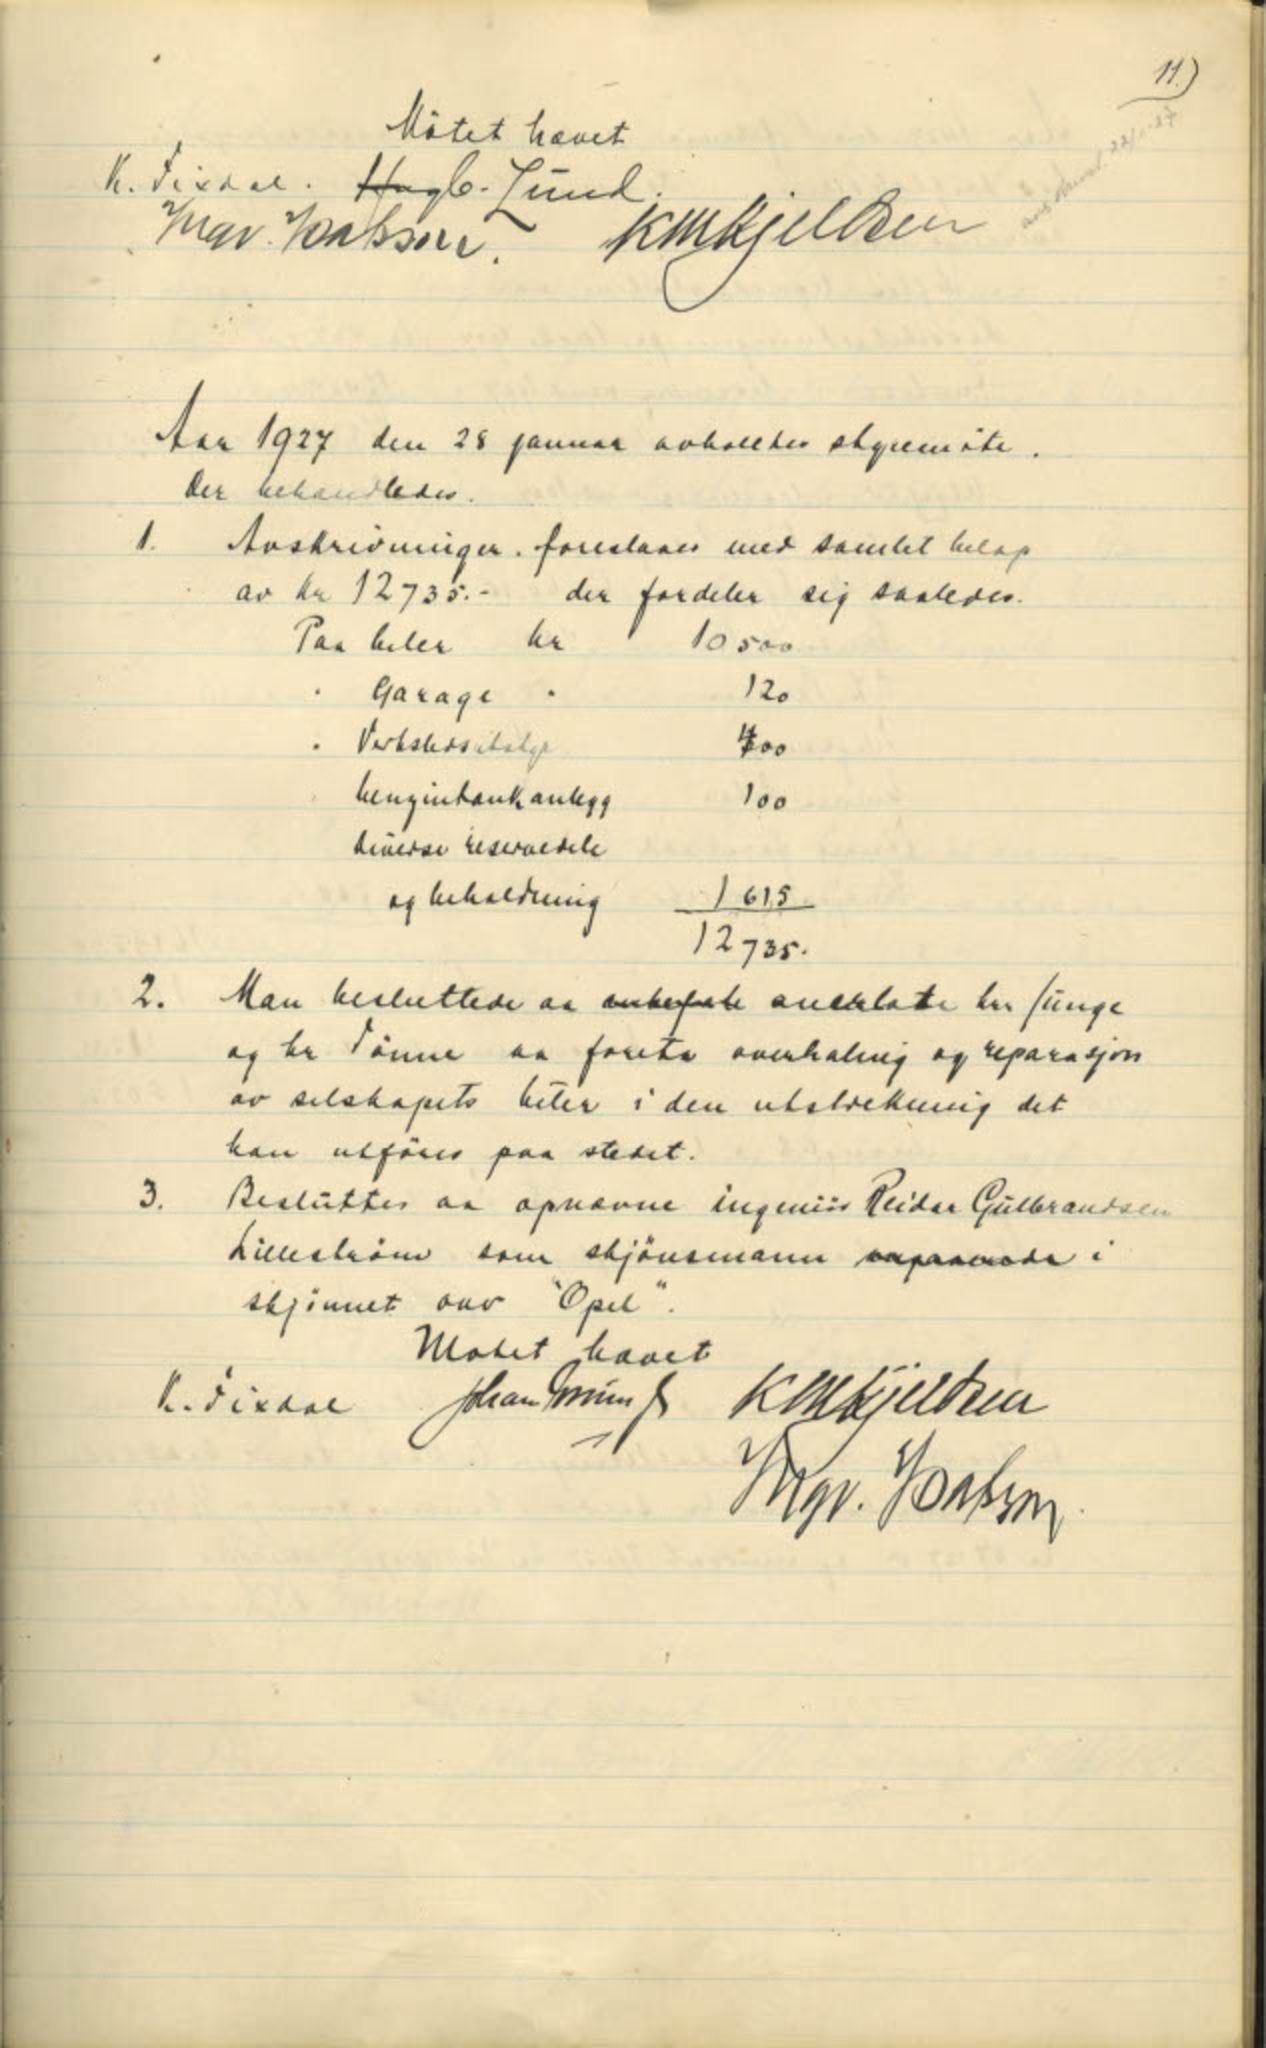 11.)
Mötet hævet
K. Fixdal. Hagb. Lund.
Ingv. KMKjeldsen
Aar 1927 den 28 januar avholdtes styremöte.
Der behandledes.
1. Avskrivninger. foreslaaes med samlet belöp
av kr 12735.- der fordeler sig saaledes.
Paa biler kr 10500
" Garage " 120
" Verkstedsutstyr 400
benzintankanlegg 100
diverse reservedele
og beholdning 1615
12735.
2. Man besluttede aa anbefale anerkate hr Junge
og hr Tönne aa foreta overhaling og reparasjon
av selskapets biler i den utstrekning det
kan utföres paa stedet.
3. Besluttes aa opnævne ingeniör Reidar Gulbrandsen
Lilleström som skjönsmann i
skjönnet over "Opel".
Mötet hævet
K. Fixdal Johan KMKjeldsen
Ingv.